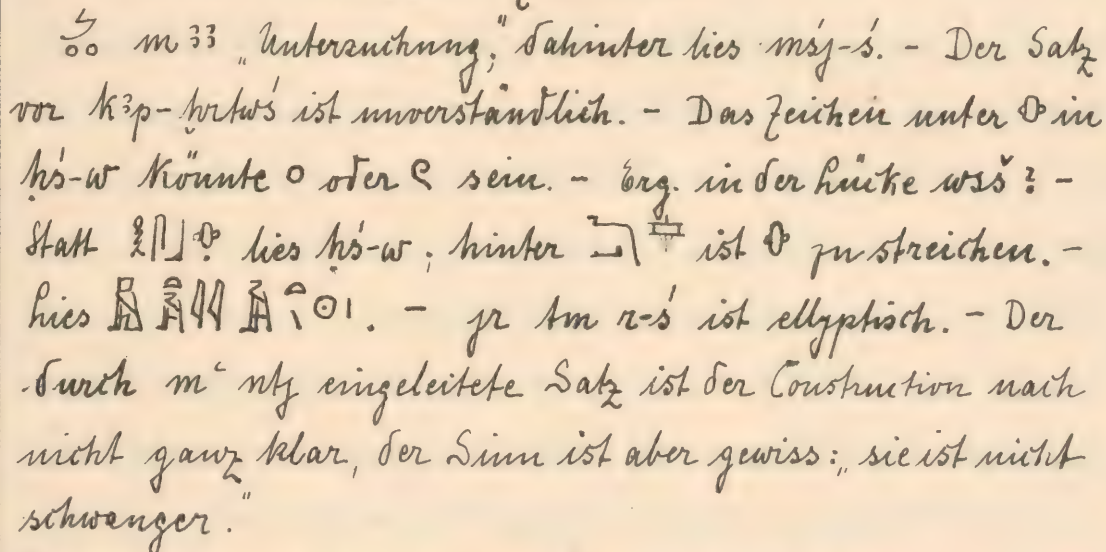 m ꜣꜣ „Untersuchung;“ dahinter lies mśj-ś. - Der Satz
vor kꜣp-ḫrtwś ist unverständlich. - Das Zeichen unter in
ḥś-w könnte o oder sein. - Erg. in der Lücke wsš? -
Statt lies ḥś-w; hinter ist zu streichen. -
Lies . - jr tm r-ś ist ellyptisch. - Der
durch mꜥ ntj eingeleitete Satz ist der Construction nach
nicht ganz klar, der Sinn ist aber gewiss: „sie ist nicht
schwanger.“